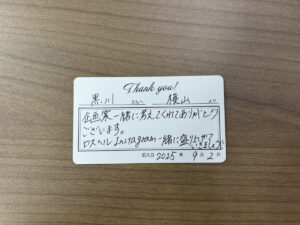 Thank you!
黒川 さんへ 横山 より
企画案一緒に考えてくれてありがとう
ございます。
ロスヘル Instagram一緒に盛り上げて
いきましょう
記入日 2025 年 9 月 2 日